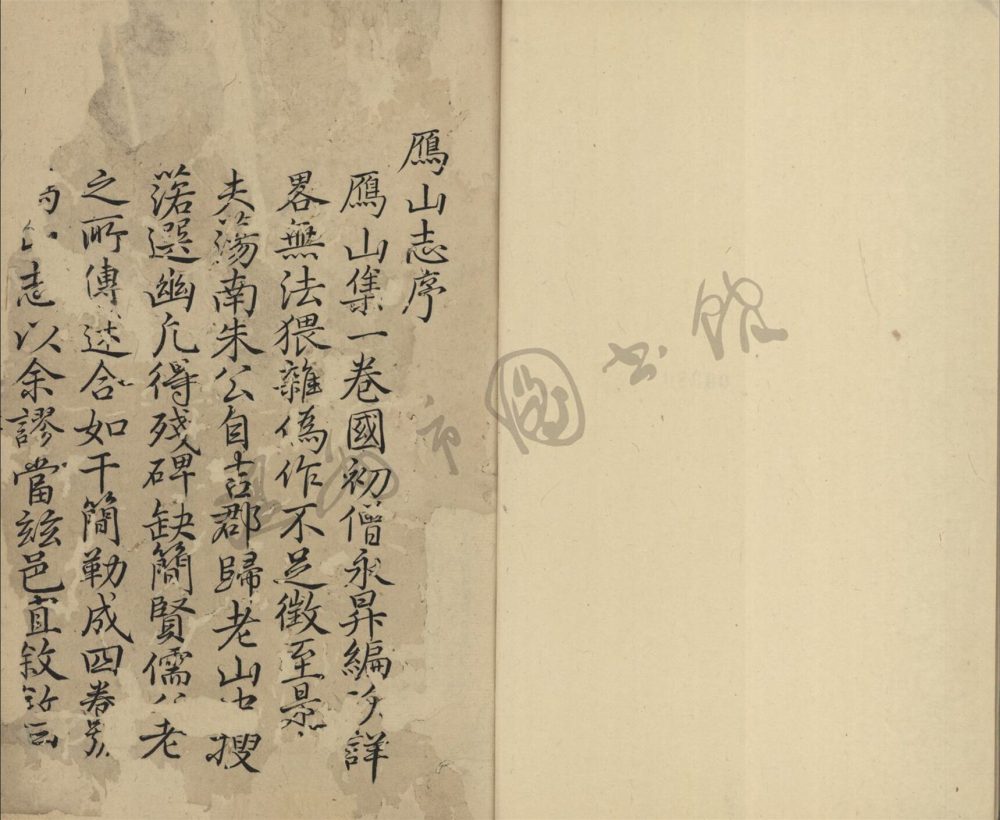 鴈山志序
鴈山集一巻國初僧永昇編次詳
畧無法猥雜偽作不足徵至景
夫蕩南朱公自吉郡歸老山中搜
渃選幽凢得殘碑缺簡賢儒 老
之所傳述合如干簡勒成四卷
志以余謬當兹邑宜敘
市圖書館